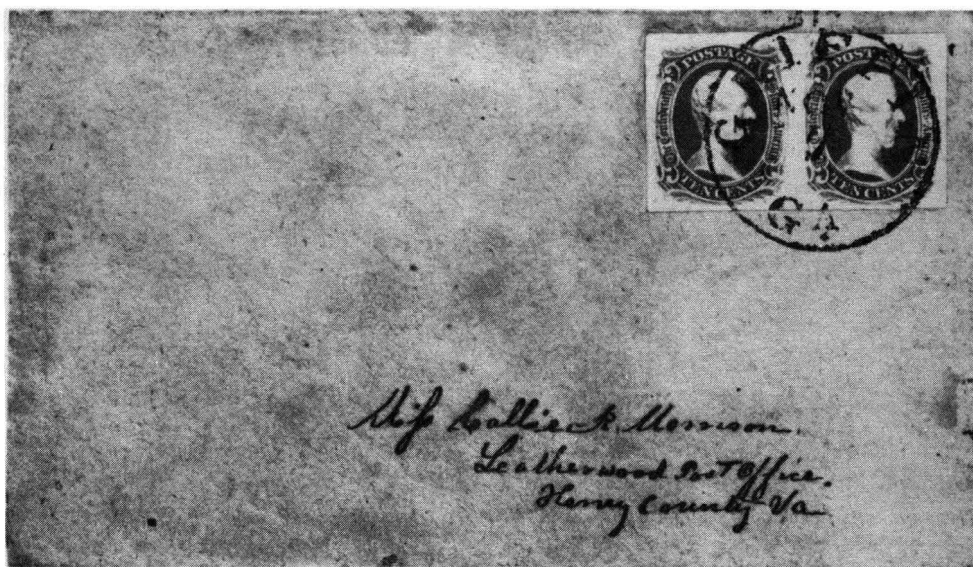 POSTAGE POSTAGE
TEN CENTS TEN CENTS
GA
Miss Callie R. Morrison.
Leatherwood Post Office.
Henry County Va